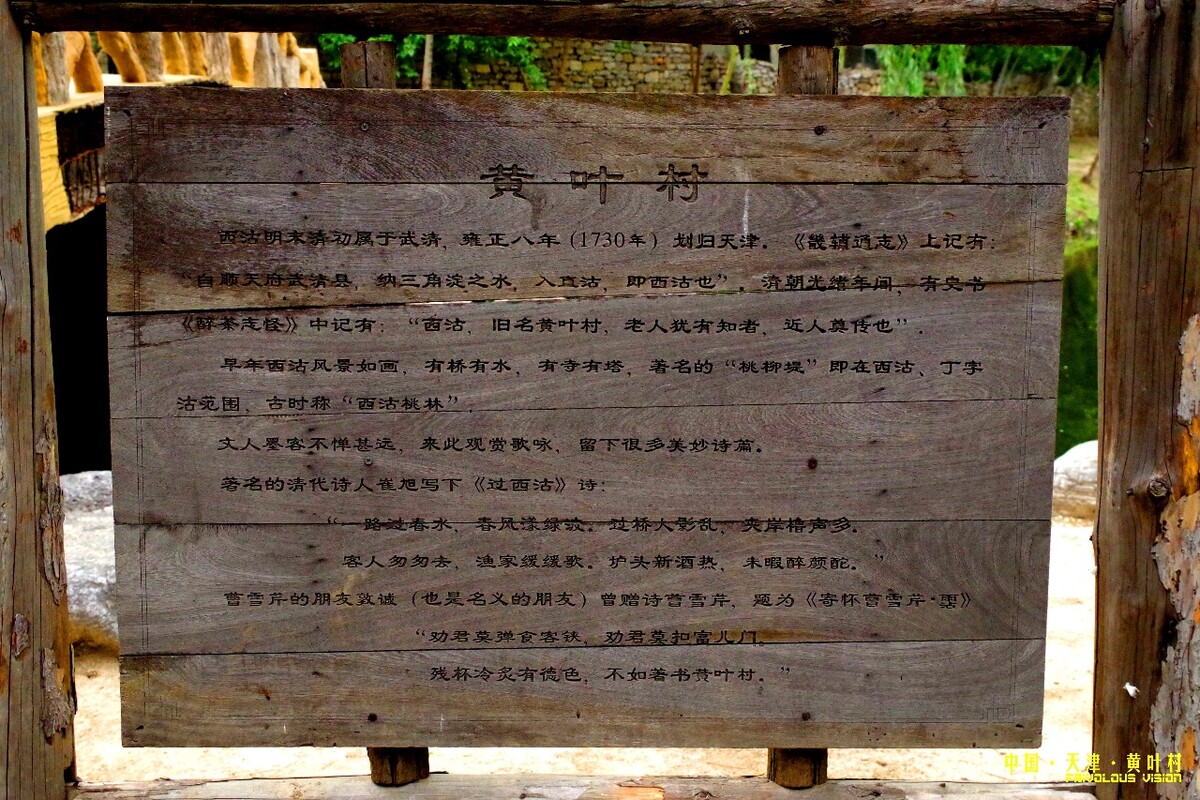 黄叶村
西沽明末清初属于武清，雍正八年（1730年）划归天津。《畿辅通志》上记有：
“自顺天府武清县，纳三角淀之水，入直沽，即西沽也”。清朝光绪年间，有史书
《醉茶志怪》中记有：“西沽，旧名黄叶村，老人犹有知者，近人莫传也”．
早年西沽风景如画，有桥有水，有寺有塔，著名的“桃柳堤”即在西沽、丁字
沽范围，古时称“西沽桃林”．
文人墨客不惮甚远，来此观赏歌咏，留下很多美妙诗篇。
著名的清代诗人崔旭写下《过西沽》诗：
“一路过春水，春风漾绿波。过桥人影乱，夹岸橹声多。
客人匆匆去，渔家缓缓歌。垆头新酒热，未暇醉颜酡。”
曹雪芹的朋友敦诚（也是名义的朋友）曾赠诗曹雪芹，题为《寄怀曹雪芹·霑》
“劝君莫弹食客铗，劝君莫扣富儿门。
残杯冷炙有德色，不如著书黄叶村。”
中国·天津·黄叶村
FRIVOLOUS VISION